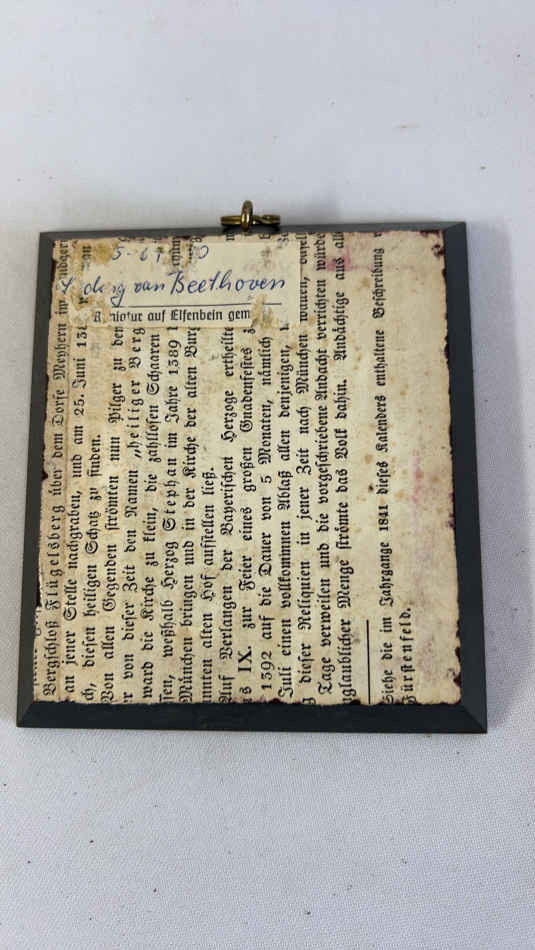 Ludwig van Beethoven
Miniatur auf Elfenbein gem
Bergschloß Flügelsberg über dem Dorfe Meyhern im
an jener Stelle nachgraben, und am 25. Juni
ch, diesen heiligen Schatz zu finden.
Von allen Gegenden strömten nun Pilger zu den
r von dieser Zeit den Namen „heiliger Berg
ward die Kirche zu klein, die zahllosen Schaaren
sen, weßhalb Herzog Stephan im Jahre 1389
München bringen und in der Kirche der alten Burg
nnten alten Hof aufstellen ließ.
Auf Verlangen der Bayerischen Herzoge ertheilte
s IX. zur Feier eines großen Gnadenfestes
1392 auf die Dauer von 5 Monaten, nämlich
Juli einen vollkommnen Ablaß allen denjenigen,
dieser Reliquien in jener Zeit nach München wallen,
Tage verweilen und die vorgeschriebene Andacht verrichten würde
nglaublicher Menge strömte das Volk dahin. Andächtige aus all
Siehe die im Jahrgange 1841 dieses Kalenders enthaltene Beschreibung
Fürstenfeld.